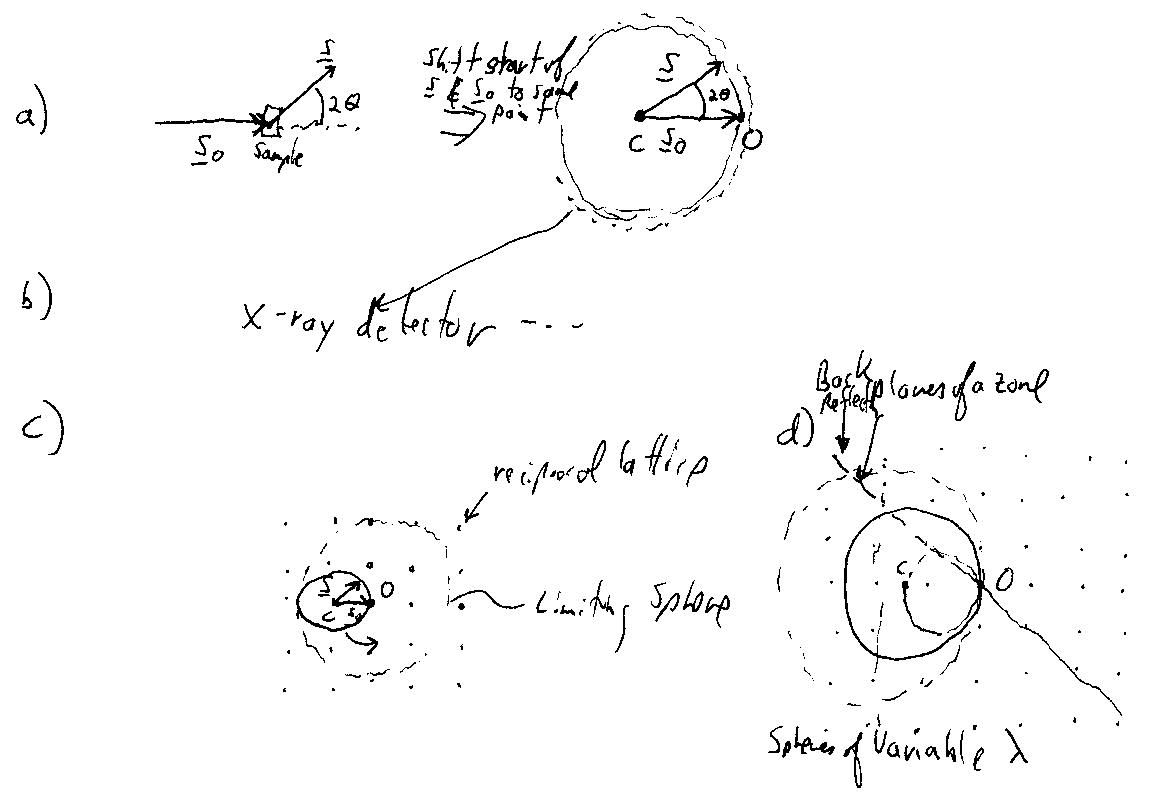 a)
S
2θ
S0
Sample
Shift start of
S & S0 to same
point
S
2θ
C S0
O
b)
X-ray detector ---
c)
reciprocal lattice
S
O
C S0
Limiting Sphere
Back
Reflect
planes of a zone
d)
C
O
Spheres of Variable λ